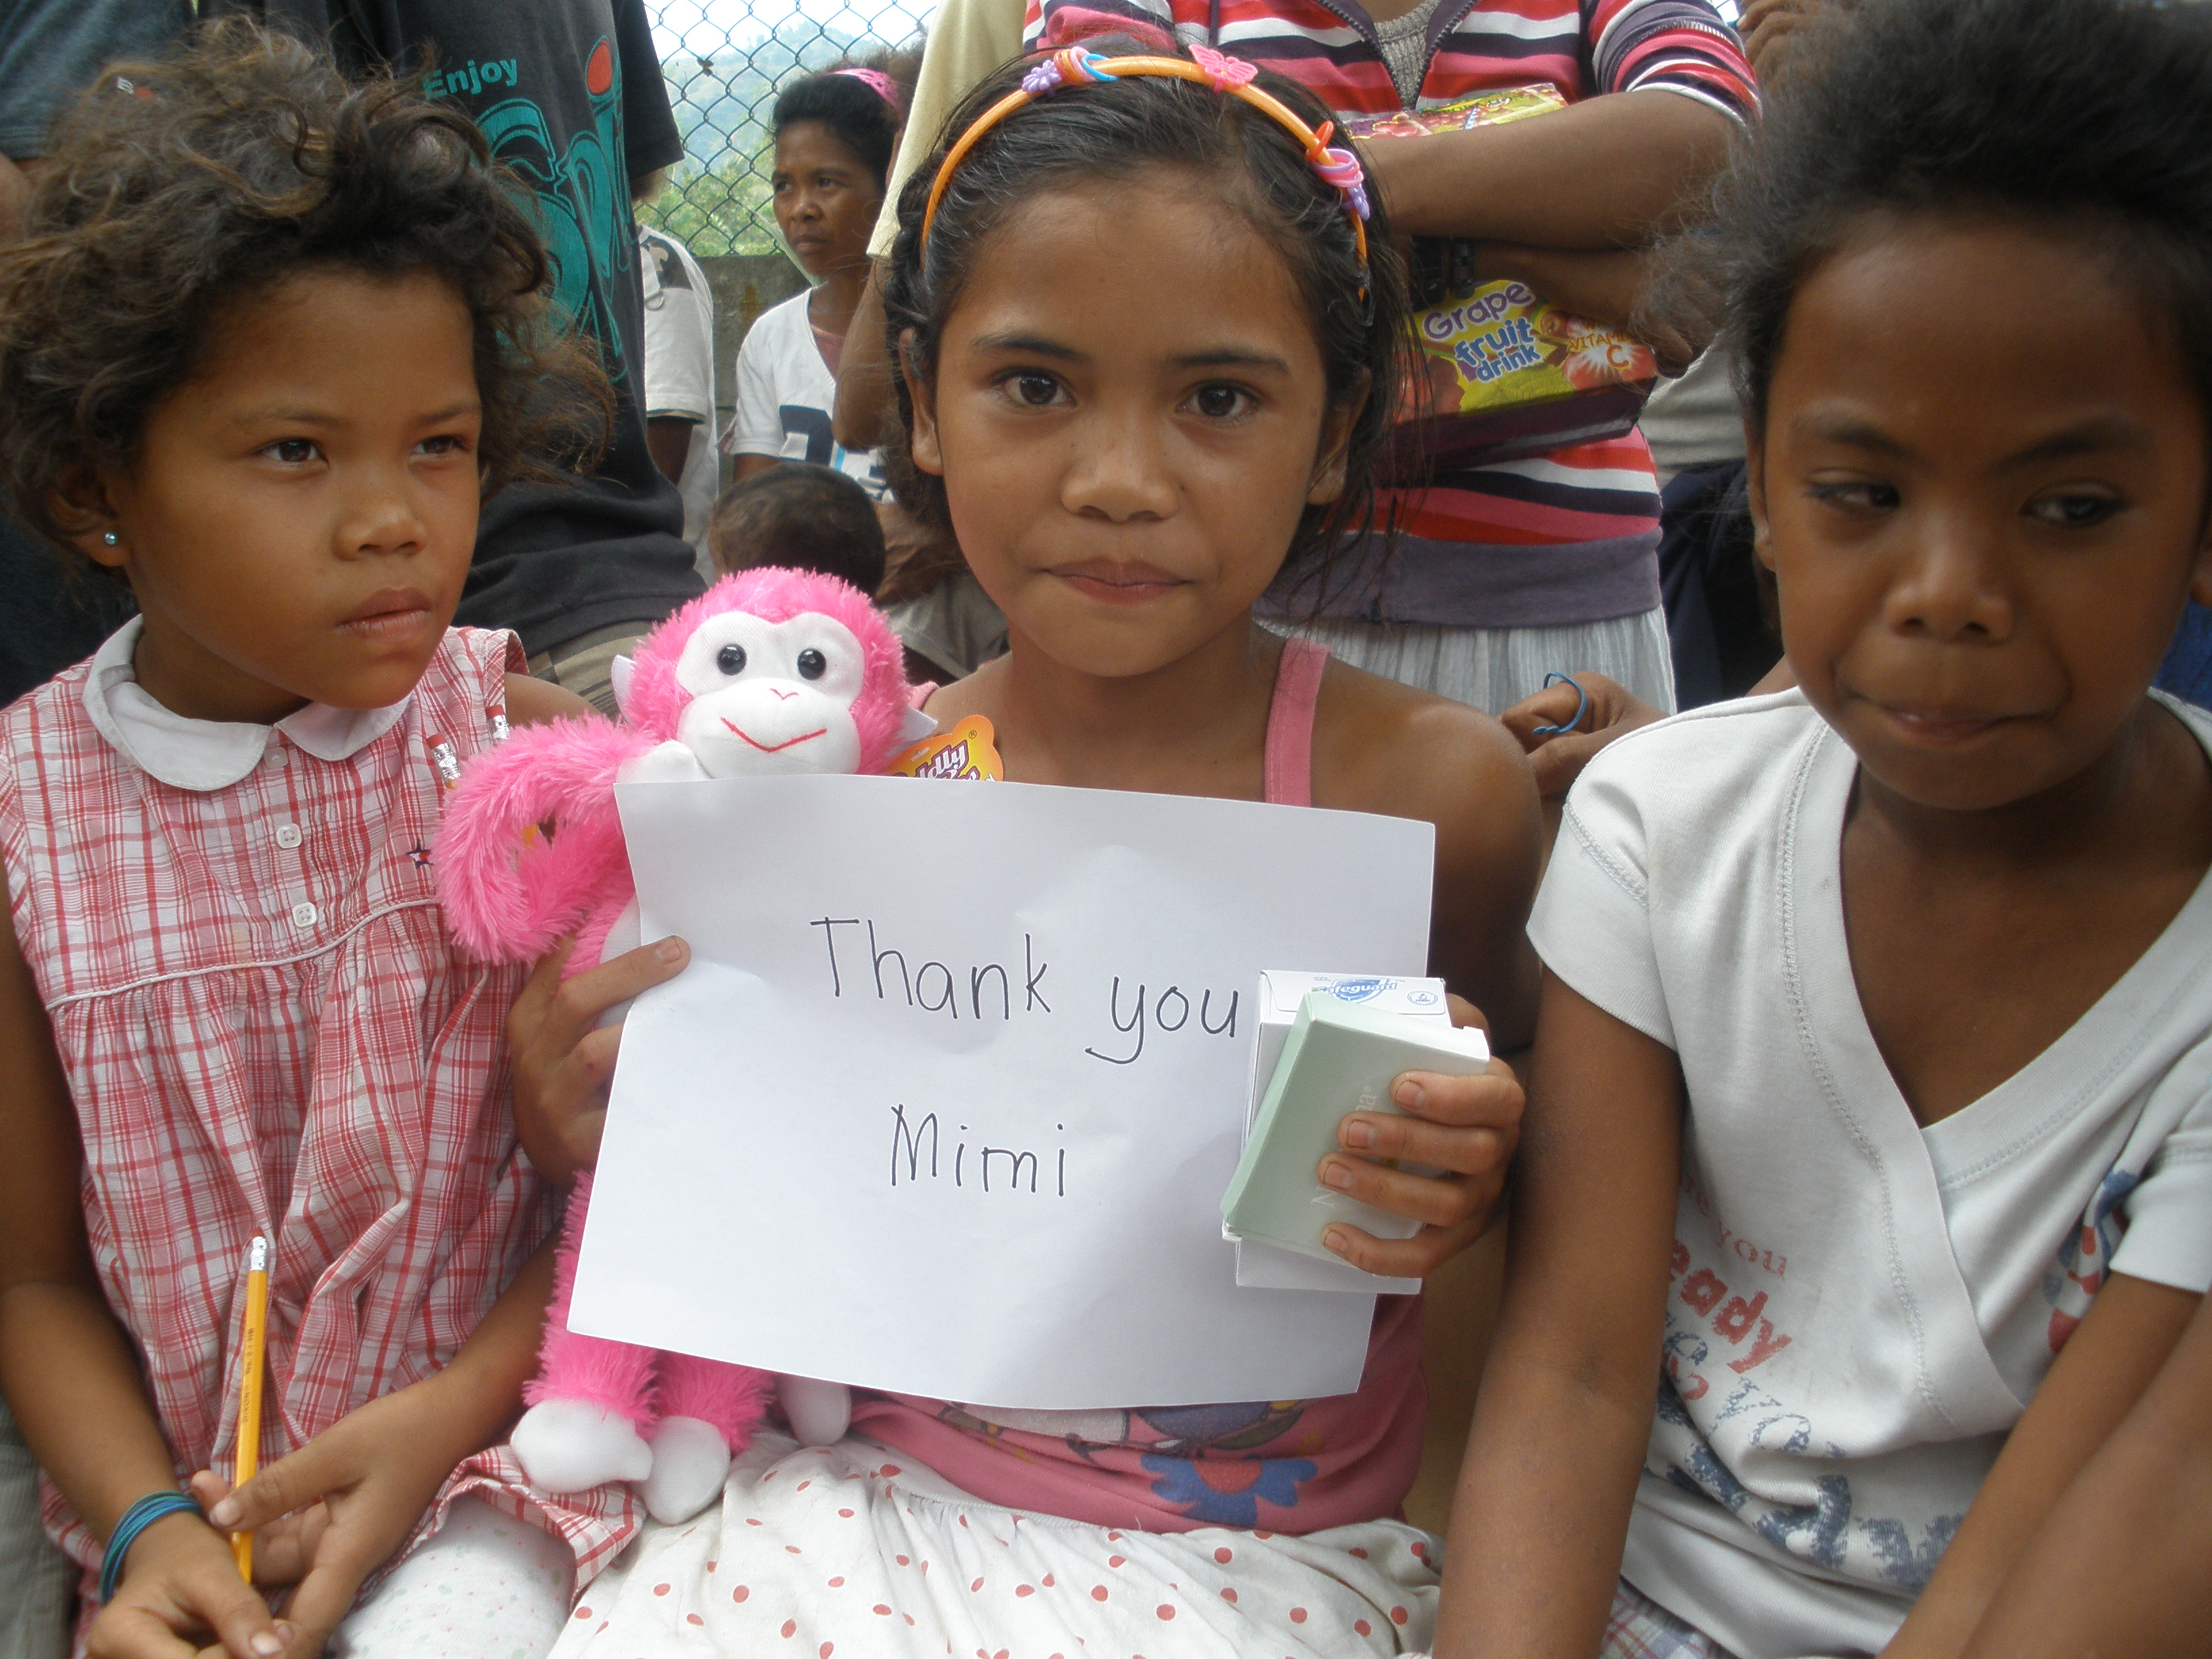 Enjoy
Grape
fruit
drink
VITAMIN
C
Thank you
Mimi
Safeguard
you
eady